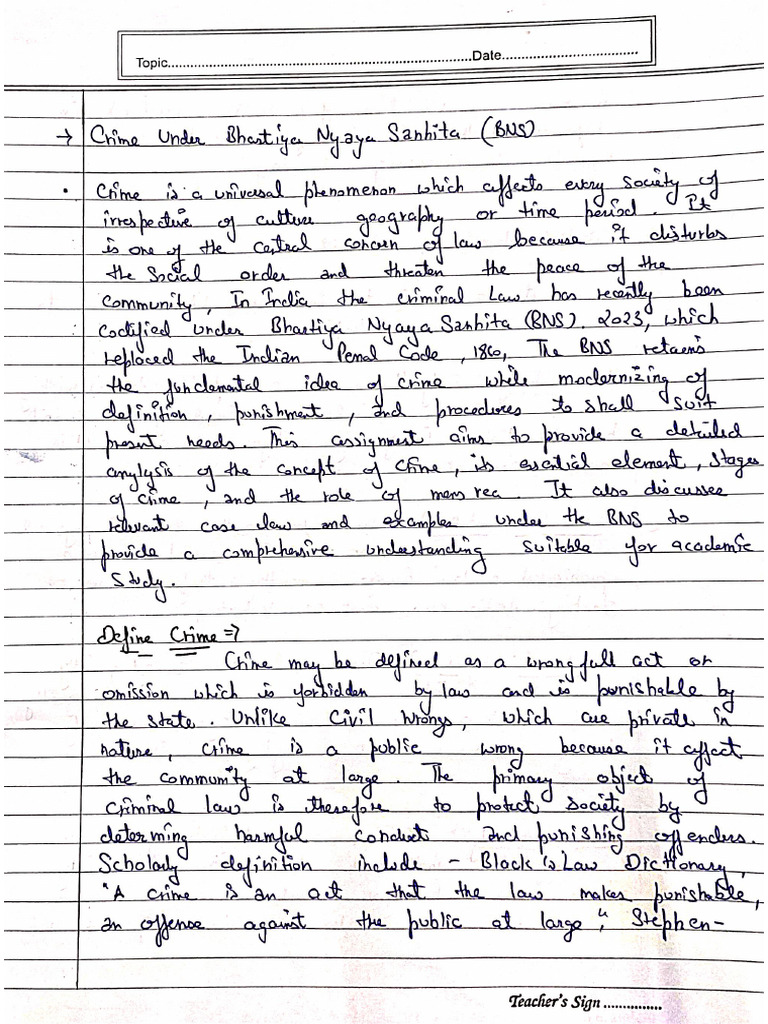 Topic...............................................................................Date....................................
→ Crime Under Bhartiya Nyaya Sanhita (BNS)
• Crime is a universal phenomenon which affects every society of
irrespective of culture geography or time period. It
is one of the central concern of law because it disturbs
the Social order and threaten the peace of the
Community, In India the criminal Law has recently been
Codified under Bhartiya Nyaya Sanhita (BNS). 2023, which
replaced the Indian Penal Code, 1860, The BNS retaens
the fundemental idea of crime while modernizing of
definition, punishment, and procedures to shall suit
present needs. This assignment aims to provide a detailed
anylysis of the concept of Crime, its essential element, stages
of crime, and the role of mens rea. It also discussee
relevant case law and examples under the BNS to
provide a comprehensive understanding suitable for academic
Study.
Define Crime ⇒
Crime may be defined as a wrongfull act or
omission which is forbidden by law and is punishable by
the state. Unlike Civil Wrongs, which are private in
nature, Crime is a public wrong because it affect
the community at large. The primary object of
Criminal law is therefore to protect Society by
determing harmful conduct and punishing offenders.
Scholarly definition include - Black's Law Dictionary,
"A crime is an act that the law makes punishable,
an offense against the public at large", Stephen-
Teacher's Sign ...............